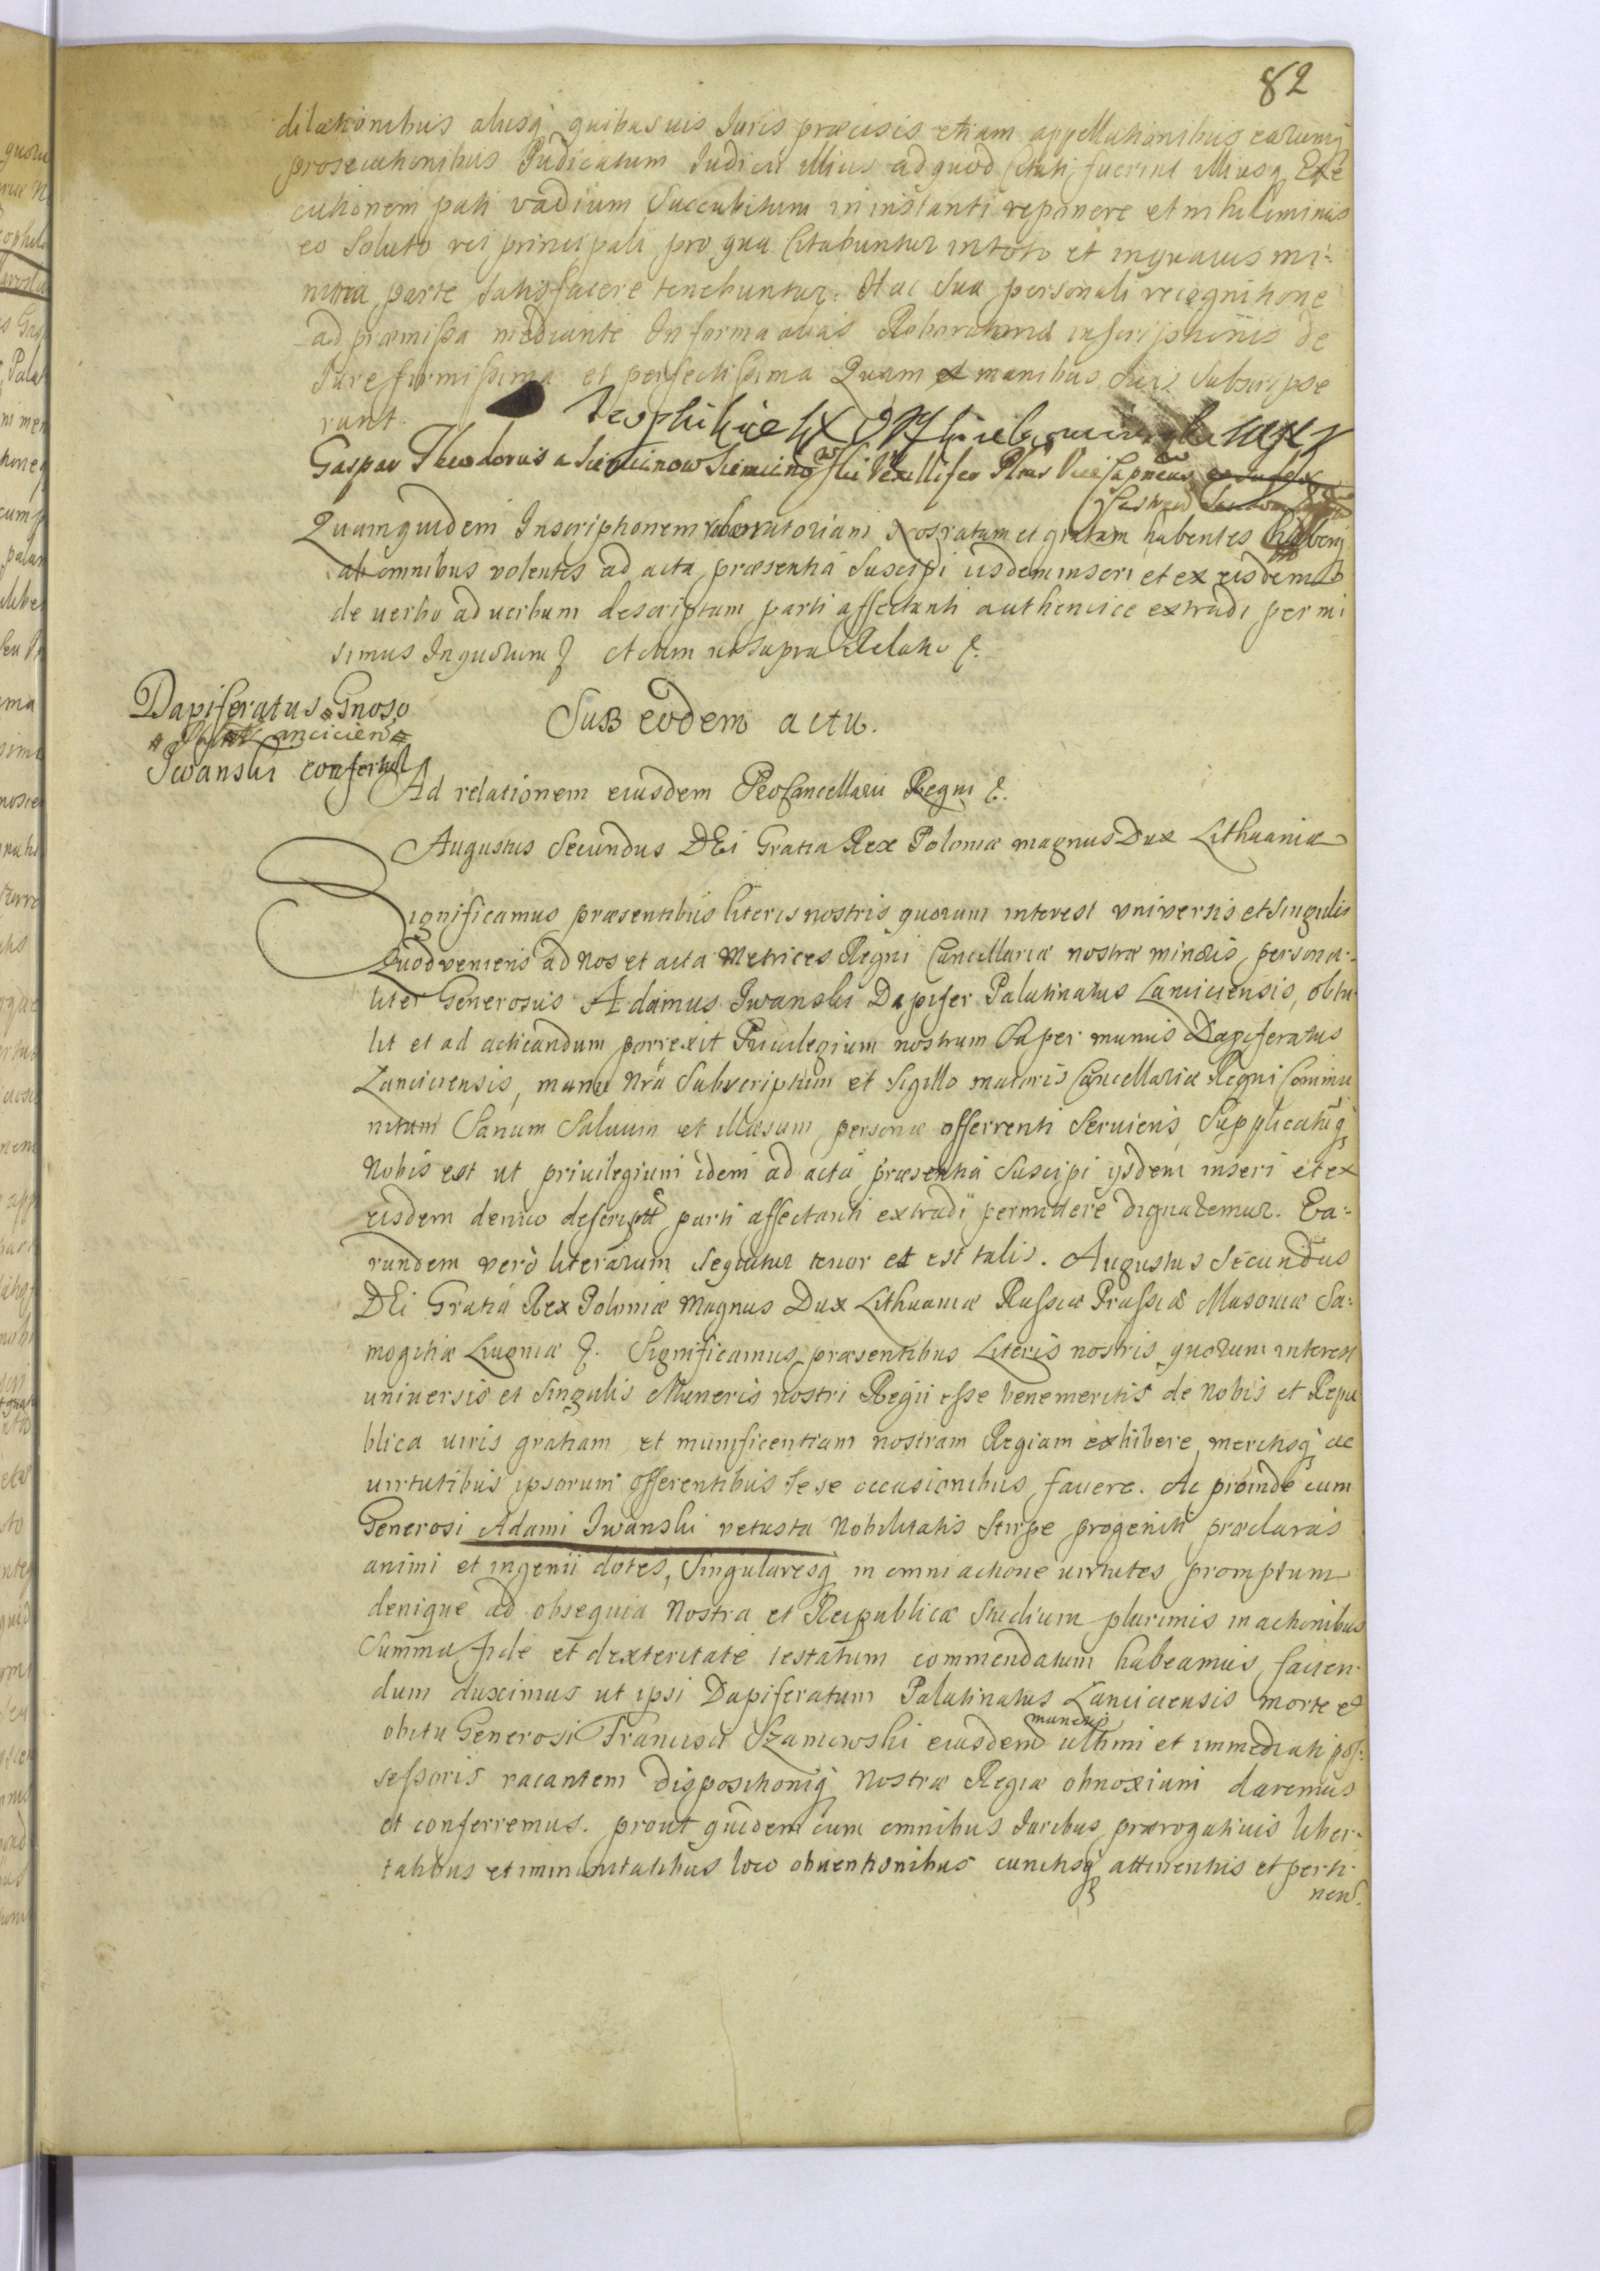 82
dilationibus aliisq quibusuis Juris præcisis etiam appellationibus earumq
prosecutionibus Judicatum Judicii illius ad quod Citati fuerint illiusq Exe
cutionem pati vadium Succubitum in instanti reponere et nihilominus
eo Soluto rei principali pro qua Citabuntur in toto et in quauis mi-
nima parte Satisfacere tenebuntur. Hac Sua personali recognitione
ad præmissa mediante In forma quas Roboratoriæ inscriptionis de
Jure firmissima et perfectissima Quam et manibus Suis Subscripse
runt.
Gaspar Theodorus a
Quamquidem Inscriptionem roboratoriam Nos ratam et gratam habentes
ab omnibus volentes ad acta præsentia Suscipi iisdem inseri et ex eisdem
de uerbo ad uerbum descriptam parti affectanti authentice extradi permi
simus In quorum & Actum ut supra Relatio &.
Dapiferatus Gnoso
Iwanski confertur
Sub eodem actu.
Ad relationem eiusdem ProCancellarii Regni &.
Augustus Secundus DEi Gratia Rex Poloniæ magnus Dux Lithuaniæ
Significamus præsentibus literis nostris quorum interest vniversis et Singulis
Quod veniens ad Nos et acta Metrices Regni Cancellariæ nostræ minoris persona-
liter Generosus Adamus Iwanski Dapifer Palatinatus Lanciciensis, obtu
lit et ad acticandum porrexit Priuilegium nostrum Super munus Dapiferatus
Lanciciensis, manu Nrã Subscriptum et Sigillo maioris Cancellariæ Regni Commu
nitum Sanum Saluum et illæsum personæ offerrenti Seruiens, Supplicatũq
Nobis est ut priuilegium idem ad acta præsentia Suscipi ysdem inseri et ex
eisdem denuo descript parti affectanti extradi permittere dignaremur. Ea-
rundem verò literarum Sequitur tenor et est talis. Augustus Secundus
DEi Gratia Rex Poloniæ Magnus Dux Lithuaniæ Russiæ Prussiæ Masouiæ Sa-
mogitiæ &. Significamus præsentibus Literis nostris quorum interest
universis et Singulis Muneris nostri Regii esse benemeritis de Nobis et Repu
blica uiris gratiam et munificentiam nostram Regiam exhibere meritisq ac
uirtutibus ipsorum offerentibus Se se occasionibus fauere. Ac proinde cum
Generosi Adami Iwanski vetusta Nobilitatis Stirpe progeniti præclaras
animi et ingenii dotes, Singularesq in omni actione uirtutes promptum
denique ad obsequia Nostra et Reipublicæ Studium plurimis in actionibus
Summa fide et dexteritate testatum commendatum habeamus, facien-
dum duximus ut ipsi Dapiferatum Palatinatus Lanciciensis morte et
obitu Generosi Francisci Szaniwski eiusdem muneris ultimi et immediati pos-
sessoris vacantem dispositioniq Nostræ Regiæ obnoxium daremus
et conferremus. prout quidem cum omnibus Juribus prærogatiuis liber-
tatibus et immunitatibus loco obuentionibus cunctisq attinentiis et perti-
nen.